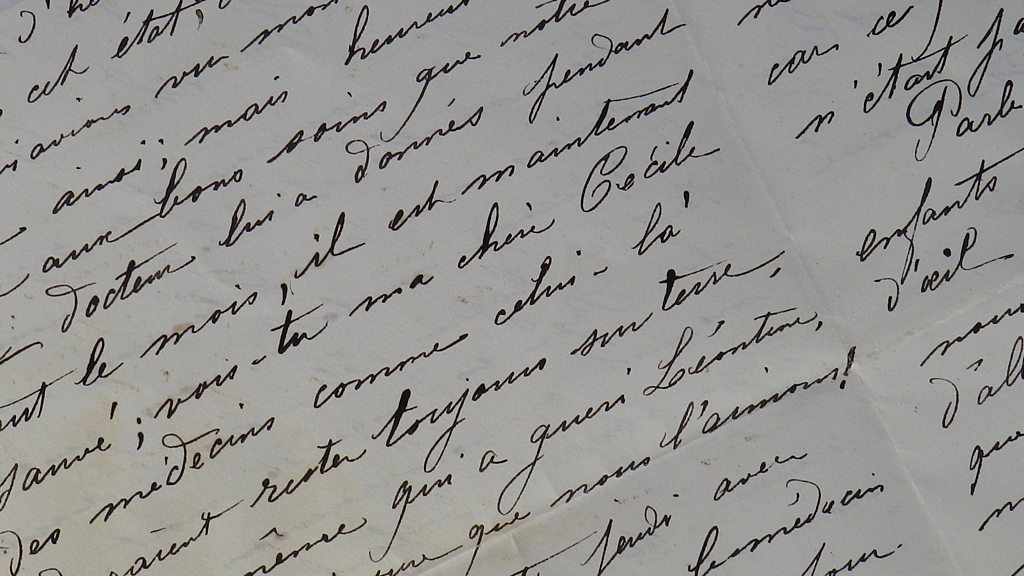 cet état,
avions vu mon
ainsi; mais heureus
aux bons soins que notre
docteur lui a donnés pendant
tout le mois, il est maintenant
sauvé; vois-tu ma chère Cécile
des médecins comme celui-là
raient rester toujours sur terre,
même qui a guéri Léontine,
que nous l'aimons!
jeudi avec
le médecin
jour.
car ce
n'était pa
Parle
enfants
d'œil
nous
d'all
que